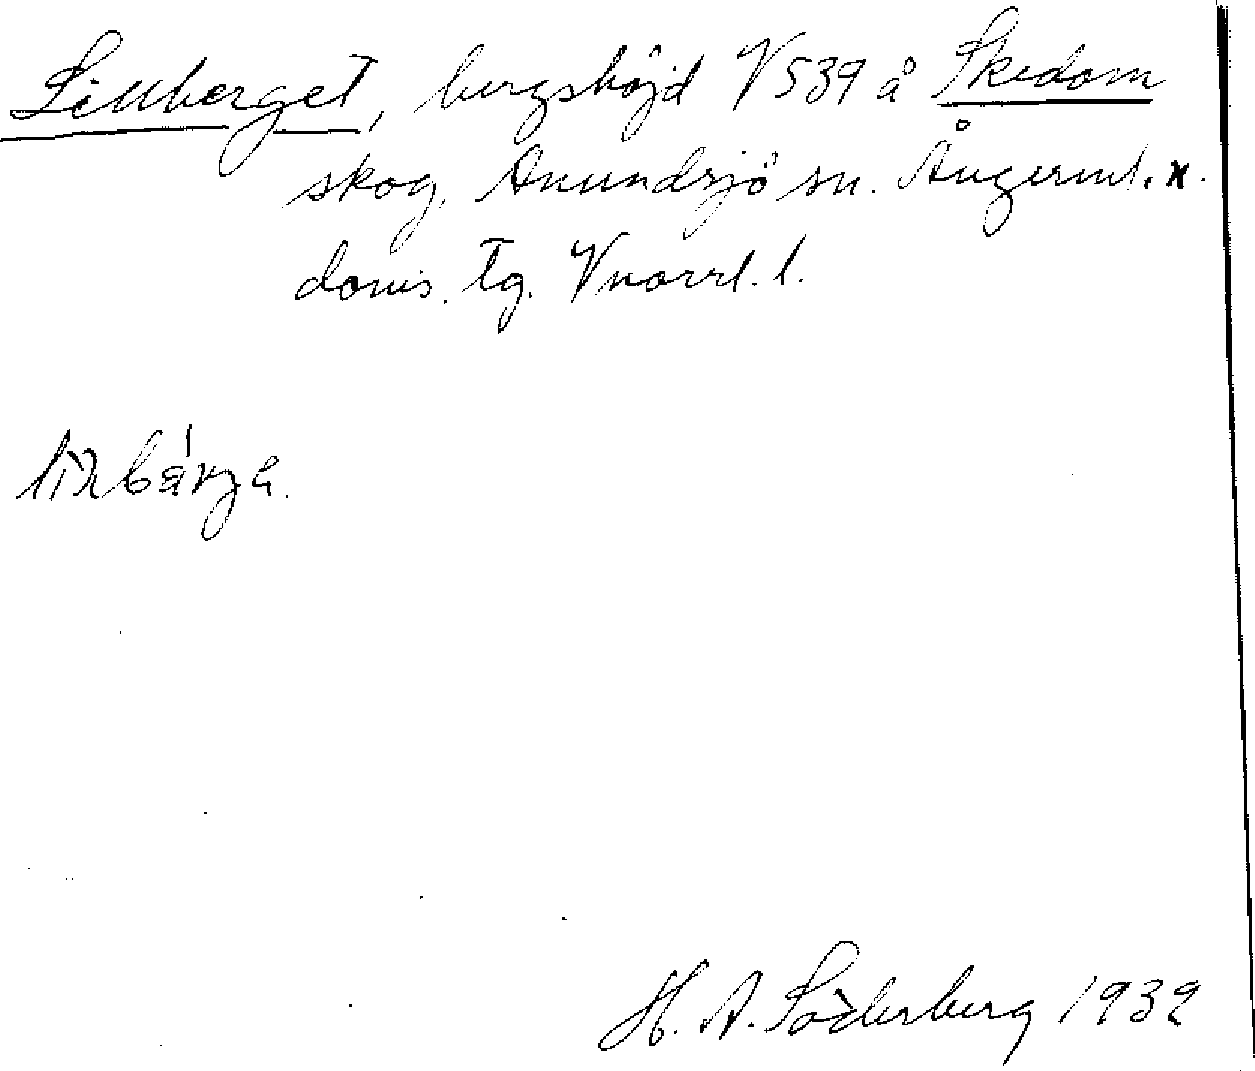 Lillberget, bergshöjd V 539 å Skedom
skog, Anundsjö sn. Ångerml. x.
doms. tg. Vnorrl. l.
H. A. Söderberg 1932